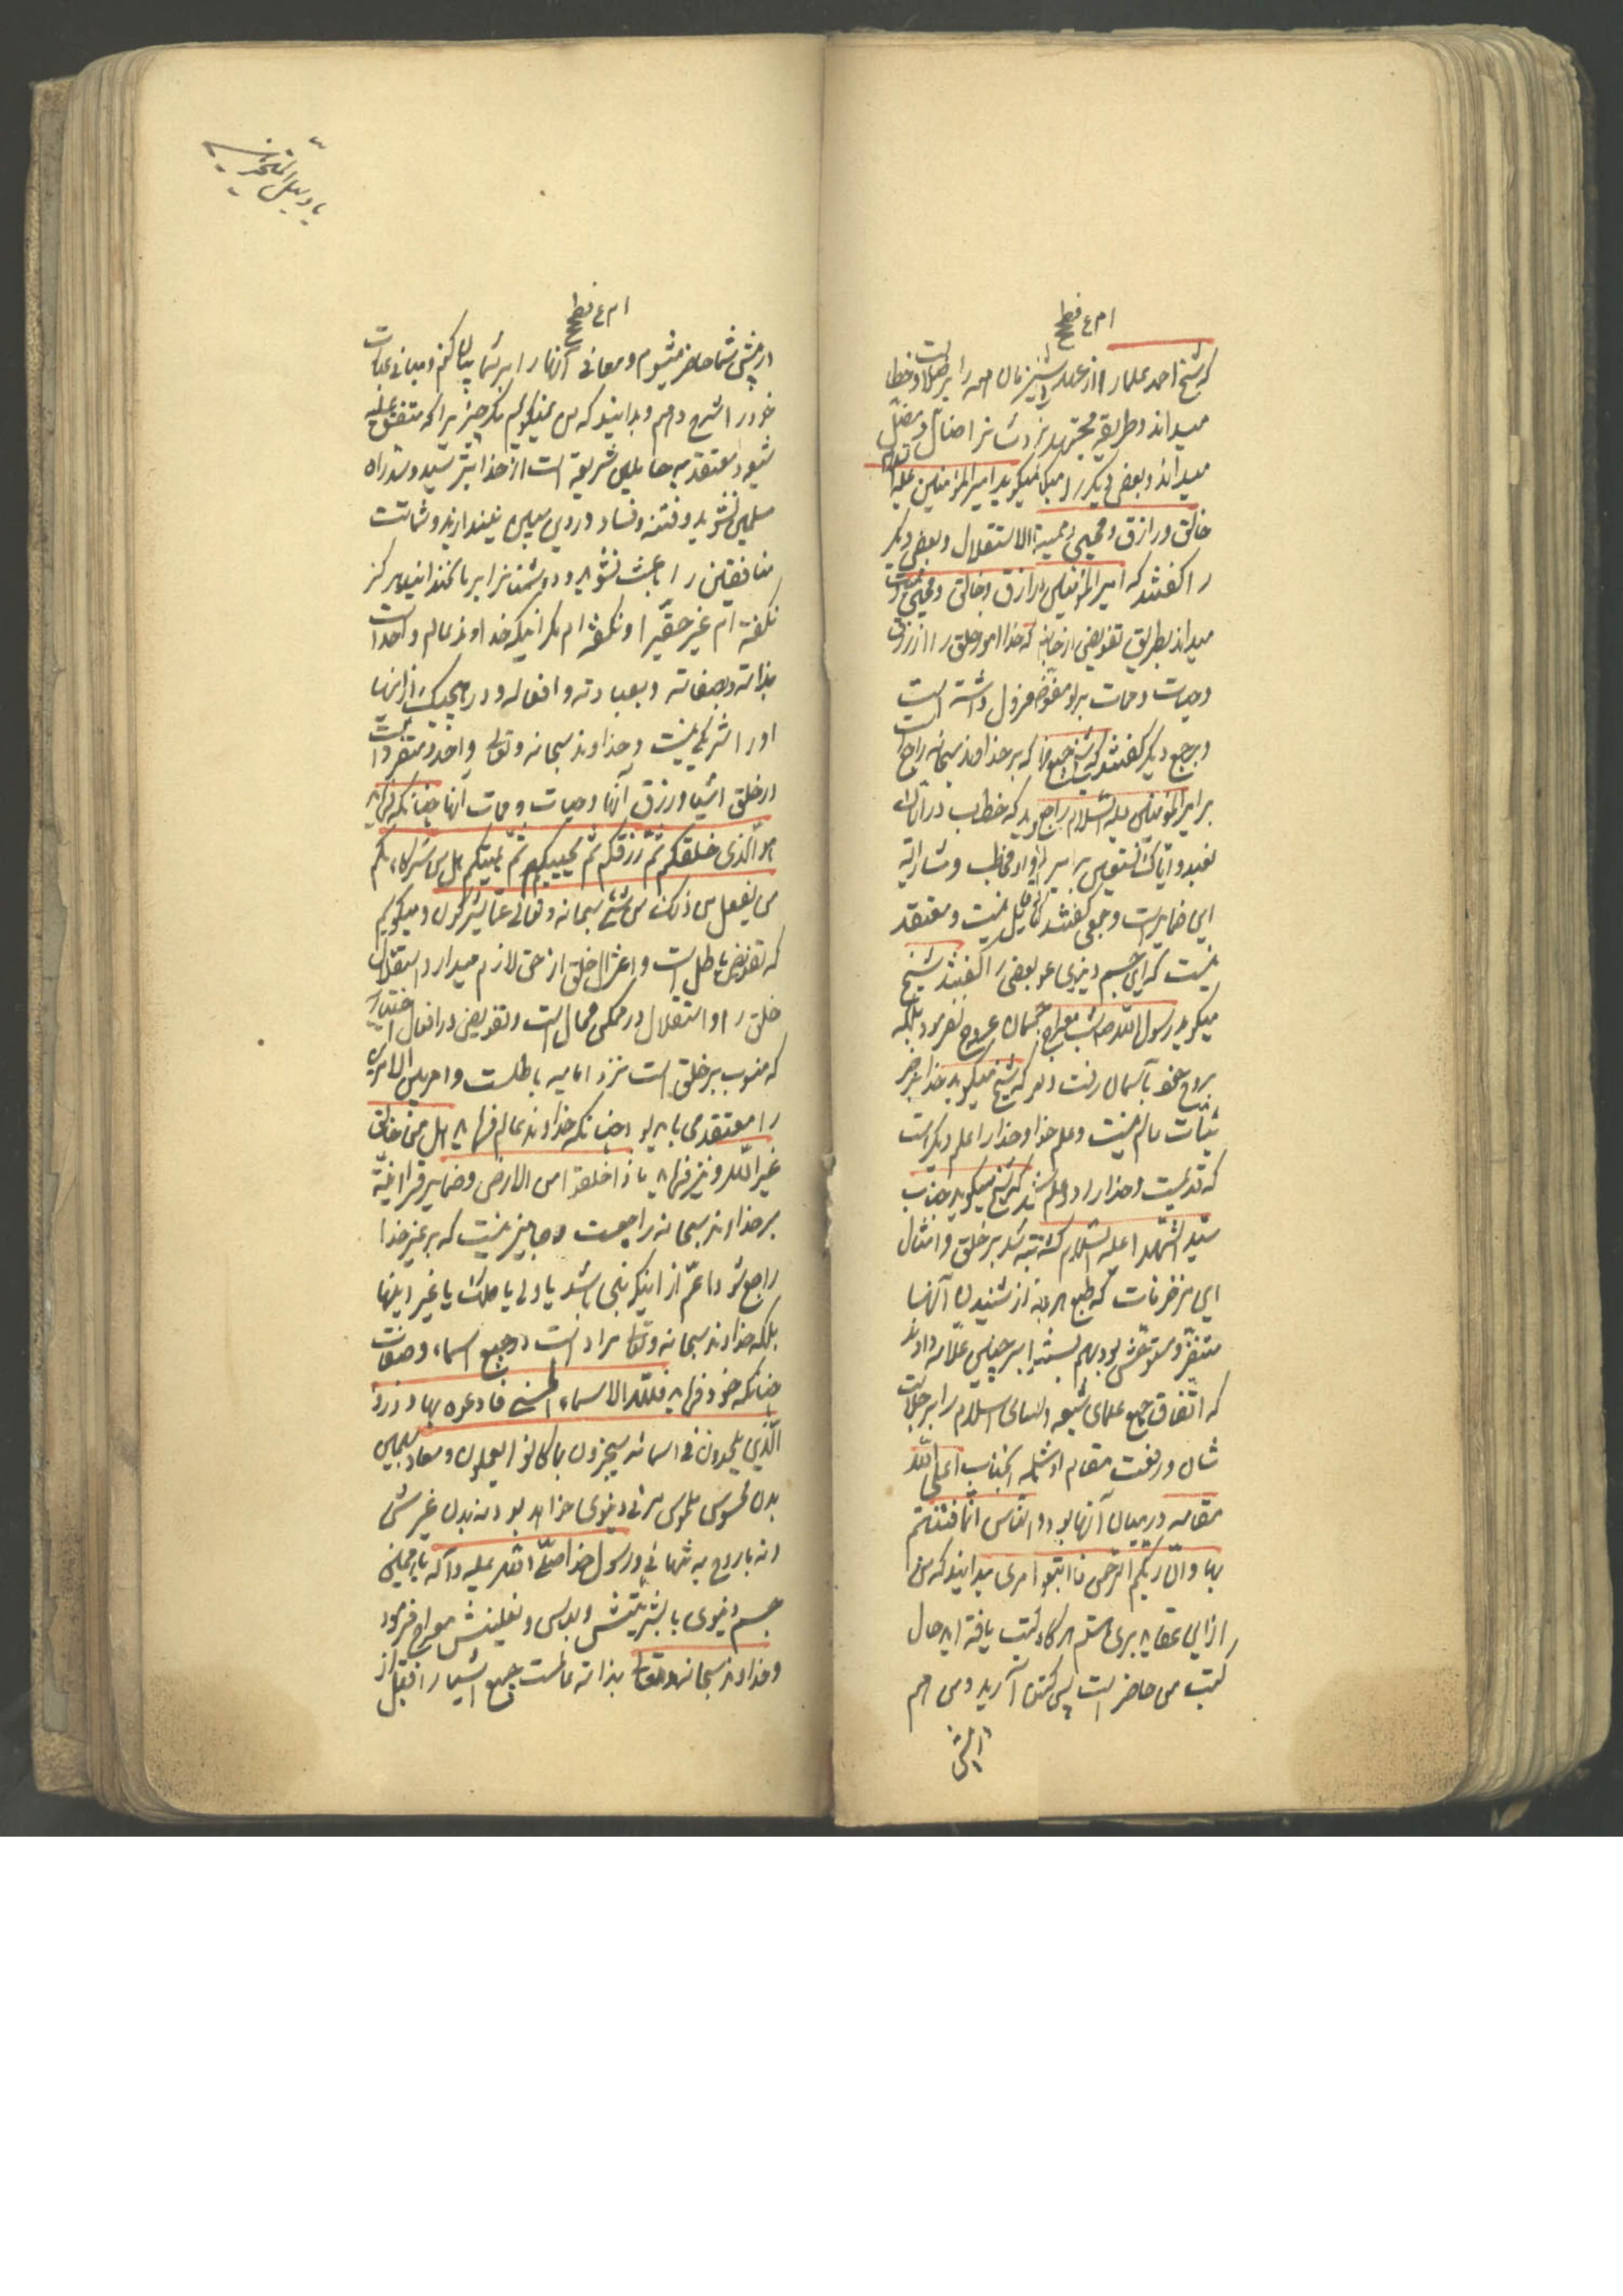 که شیخ احمد علما را از عهد شیخ زمان همه را بر ضلالت و خطا
میداند و طریقه مجتهدین را ضال و مضل
میداند و بعض دیگر را میگویند امیر المؤمنین علیه السلام
خالق و رازق و محیی و ممیت بالاستقلال و بعض دیگر
را گفتند که امیر المؤمنین را رازق و خالق و محیی و ممیت
میداند بطریق تفویض از جانب که خدا امور خلق را از رزق
و حیات و ممات بر او مفوض و معزول داشته است
و بر جمع دیگر گفتند که شیخ جمیع که بر خداوند سبحانه راجع است
بر امیر المؤمنین علیه السلام راجع که خطاب در ایاک
نعبد و ایاک نستعین بر امیر و او مخاطب و مشار الیه
این ضمایر است و جمعی گفتند که قایل نیست و معتقد
نیست که این جسم دنیوی عود بعضی را گفتند شیخ
میگوید رسول الله صاحب معراج بجسمان عروج نفرمود بلکه
بروح خود بآسمان رفت و که شیخ میگوید خدا بر
عالم نیست و علم خدا و خدا را علم دیگر است
که قدیمست و خدا را دو علم که شیخ میگوید جناب
سید الشهدا علیه السلام کشته نشد بر خلق و امثال
این مزخرفات که طبع از شنیدن آنها
متنفر و متوحش بود بهم بسته بر چنین علامه دادند
که اتفاق جمیع علمای شیعه و علمای اسلام را بر جلالت
شان و رفعت مقام او آنجناب اعلی الله
مقامه در میان آنها بود و الناس انما فتنتم
بها و ان ربکم الرحمن فاتبعوا امری بدانید که من
از این عقاید بری هستم هرگاه کتب یافته اید حال
کتب من حاضر است پس کتب آرید و من هم
در پیش شما حاضر میشوم و معانی آنها را بر شما بیان کنم و مبانی عبارت
خود را شرح دهم و بدانید که من نمیگویم مگر چیزیرا که متفق علیه
شیعه و معتقد به حاملین شریعة است از خدا بترسید و سد راه
مسلمین نشوید و فتنه و فساد در دین مبین نیندازید و شماتت
منافقین را باعث نشوید و دشمنانرا بر ما نخندانید هرگز
نگفته ام غیر حق را و نگفته ام مگر اینکه خداوند عالم واحد است
بذاته و بصفاته و بعبادته و افعاله و در هیچیک از اینها
او را شریکی نیست و خداوند سبحانه و تعالی واحد و متفرد است
در خلق اشیا و رزق آنها و حیات و ممات آنها چنانکه فرماید
هو الذی خلقکم ثم رزقکم ثم یمیتکم ثم یحییکم هل من شرکائکم
من یفعل من ذلکم من شئ سبحانه و تعالی عما یشرکون و میگویم
که تفویض باطل است و اعتزال خلق از حق لازم میدارد استقلال
خلق را و استقلال در ممکن محال است و تفویض در افعال اختیاریه
که منسوب بر خلق است نزد امامیه باطلست و امر بین الامرین
را معتقد می باید بود چنانکه خداوند عالم فرماید هل من خالق
غیر الله و نیز فرماید ماذا خلقوا من الارض و ضمایر قرانیّة
بر خداوند سبحانه راجعست و جایز نیست که بر غیر خدا
راجع شود اعم از اینکه نبی باشد یا ولی یا ملک یا غیر اینها
بلکه خداوند سبحانه و تعالی مراد است در جمیع اسماء و صفات
چنانکه خود فرماید فلله الاسماء الحسنی فادعوه بها و ذروا
الذین یلحدون فی اسمائه سیجزون ما کانوا یعملون و معاد بهمین
بدن محسوس ملموس مرئی دنیوی خواهد بود نه بدن غیرش
و نه با روح به تنهائی و رسول خدا صلی الله علیه و آله با همین
جسم دنیوی با بشریتش و لباس و نعلینش معراج فرمود
و خداوند سبحانه و تعالی بذاته عالمست جمیع اشیا را قبل از